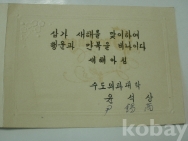 삼가 새해를 맞이하며
행운과 만복을 비나이다
새해 아침
수도의과대학
윤 석 상
kobay